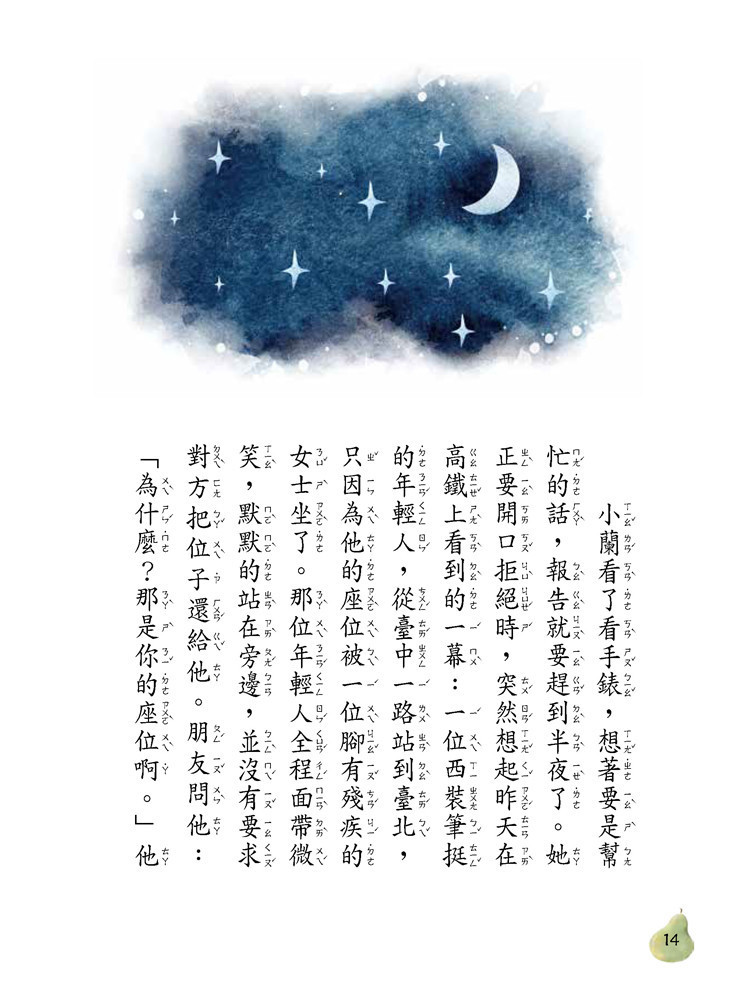 小蘭看了看手錶，想著要是幫
忙的話，報告就要趕到半夜了。她
正要開口拒絕時，突然想起昨天在
高鐵上看到的一幕：一位西裝筆挺
的年輕人，從臺中一路站到臺北，
只因為他的座位被一位腳有殘疾的
女士坐了。那位年輕人全程面帶微
笑，默默的站在旁邊，並沒有要求
對方把位子還給他。朋友問他：
「為什麼？那是你的座位啊。」他
14